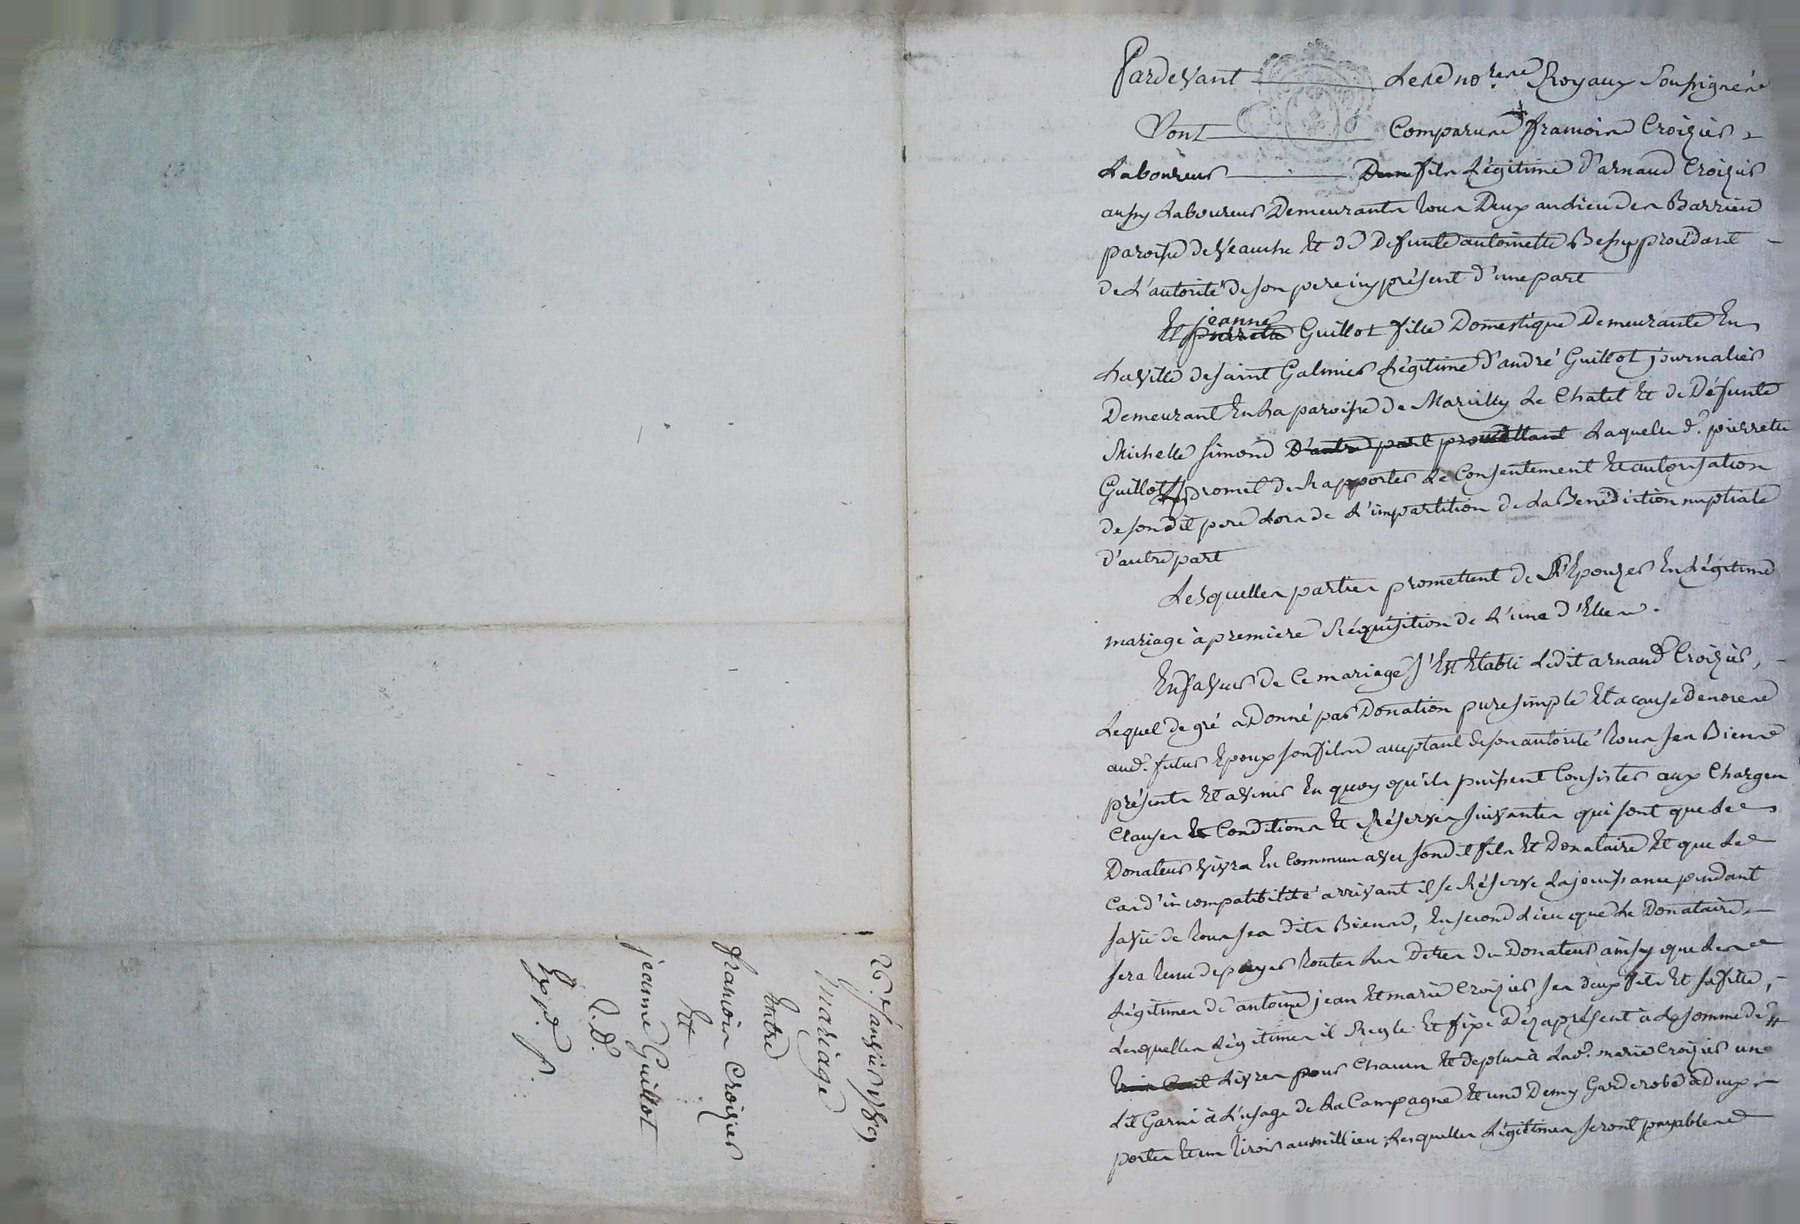 26 Janvier 1789
Mariage
Entre
francois Croizier
Et
jeanne Guillot
Pardevant Les no.res Royaux soussignés
Sont Comparus francois Croizier
Laboureur fils Légitime d'arnaud Croizier
aussy Laboureur Demeurants tous Deux au Lieu des Barrieu
paroisse de Veauche Et de Defunte antoinette Bessy procédant
de L'autorité de son pere icy présent d'une part
Et jeanne Guillot fille Domestique Demeurante En
La Ville de saint Galmier Légitime d'andré Guillot journalier
Demeurant En La paroisse de Marcilly Le Chatel Et de Défunte
Michelle simond D'autre part promettant Laquelle d. pierrette
Guillot promet de Rapporter Le Consentement Et autorisation
de son dit pere Lors de L'impartition de La Bénédiction nuptiale
d'autre part
Lesquelles parties promettent de S'Epouzer En Légitime
mariage à premiere Réquisition de L'une d'Elles.
En faveur de Ce mariage s'Est Etabli Ledit arnaud Croizier,
Lequel de gré a Donné par Donation pure simple Et a cause de noces
aud. futur Epoux son fils acceptant de son autorité tous ses Biens
présents Et avenir En quoy qu'ils puissent Consister aux Charges
Clauses Et Conditions Et Réserves suivantes qui sont que Le
Donateur vivra En Commun avec son dit fils Et Donataire Et que Le
Cas d'incompatibilité arrivant il se Réserve La jouissance pendant
sa vie de tous ses dits Biens, En second Lieu que Le Donataire
sera tenu de payer toutes Les Dettes du Donateur ainsy que Les
Légitimes de antoine jean Et marie Croizier ses deux fils Et sa fille,
Lesquelles Légitimes il Regle Et fixe Dez aprésent à La somme de
trois Cent Livres pour Chacun Et de plus à Lad. marie Croizier un
Lit Garni à L'usage de La Campagne Et une Demy Garderobe à Deux
portes Et un tiroir au millieu; Lesquelles Légitimes seront payables